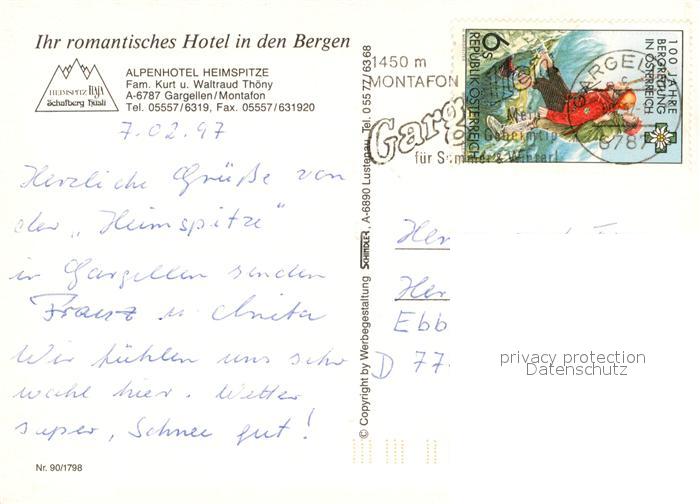 Ihr romantisches Hotel in den Bergen
HEIMSPITZ
Schafberg Hüsli
ALPENHOTEL HEIMSPITZE
Fam. Kurt u. Waltraud Thöny
A-6787 Gargellen/Montafon
Tel. 05557/6319, Fax. 05557/631920
7.02.97
Herzliche Grüße von
der „Heimspitze"
in Gargellen senden
Franz u. Anita
Wir fühlen uns sehr
wohl hier. Wetter
super, Schnee gut!
Nr. 90/1798
© Copyright by Werbegestaltung SCHINDLER, A-6890 Lustenau, Tel. 05577/6368
1450 m
MONTAFON
Mein
Geheimtip
für Sommer & Winter!
GARGELL
6787
6s
REPUBLIK ÖSTERREICH
100 JAHRE
BERGRETTUNG
IN ÖSTERREICH
Her
Her
Ebb
D 77
privacy protection
Datenschutz